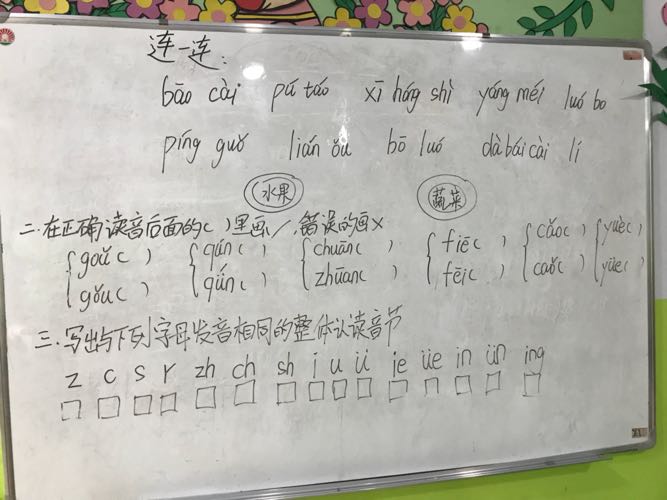 连一连:
bāo cài pú táo xī hóng shì yáng méi luó bo
píng guǒ lián ǒu bō luó dà bái cài lí
水果 蔬菜
二.在正确读音后面的( )里画✓,错误的画×
goǔ( ) qún( ) chuān( ) fiē( ) cǎo( ) yuè( )
gǒu( ) qǘn( ) zhuān( ) fēi( ) caǒ( ) yüe( )
三.写出与下列字母发音相同的整体认读音节
z c s r zh ch sh i u ü ie üe in ün ing